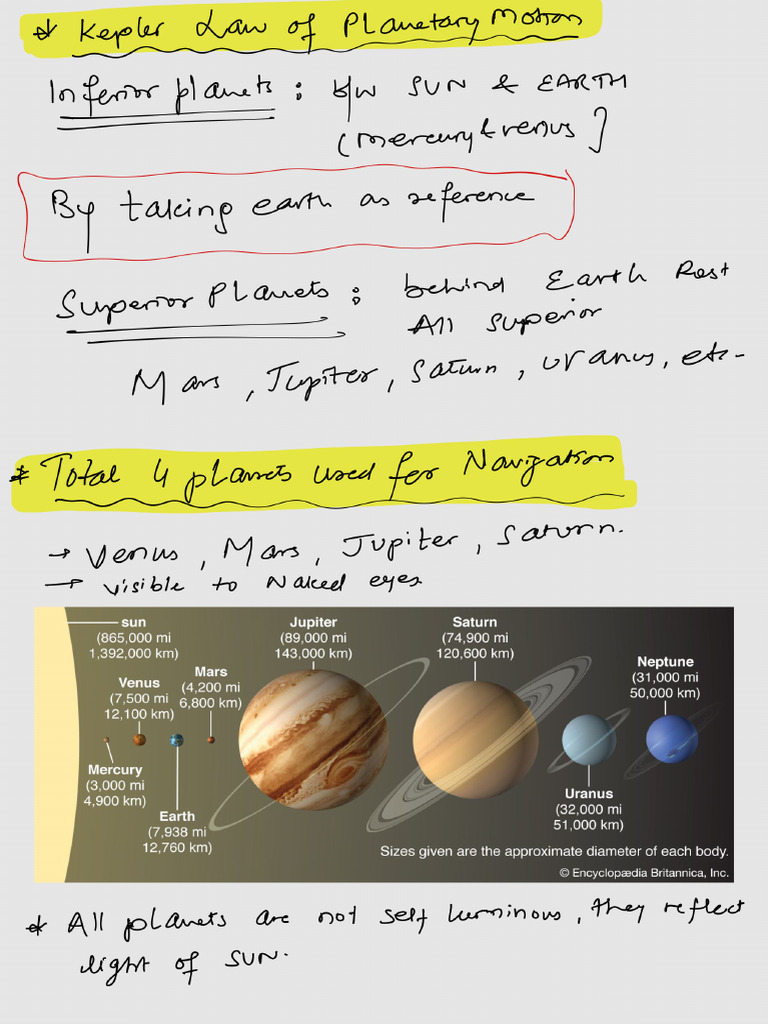 * Kepler Law of Planetary Motion
Inferior planets : b/w SUN & EARTH
(mercury & venus]
By taking earth as reference
Superior Planets : behind Earth Rest
All superior
Mars , Jupiter , Saturn , uranus, etc-
* Total 4 planets used for Navigation
→ Venus , Mars , Jupiter , Saturn.
→ visible to Naked eyes
sun
(865,000 mi
1,392,000 km)
Jupiter
(89,000 mi
143,000 km)
Saturn
(74,900 mi
120,600 km)
Neptune
(31,000 mi
50,000 km)
Mars
(4,200 mi
6,800 km)
Venus
(7,500 mi
12,100 km)
Mercury
(3,000 mi
4,900 km)
Earth
(7,938 mi
12,760 km)
Uranus
(32,000 mi
51,000 km)
Sizes given are the approximate diameter of each body.
© Encyclopædia Britannica, Inc.
* All planets are not self luminous, they reflect
light of SUN.